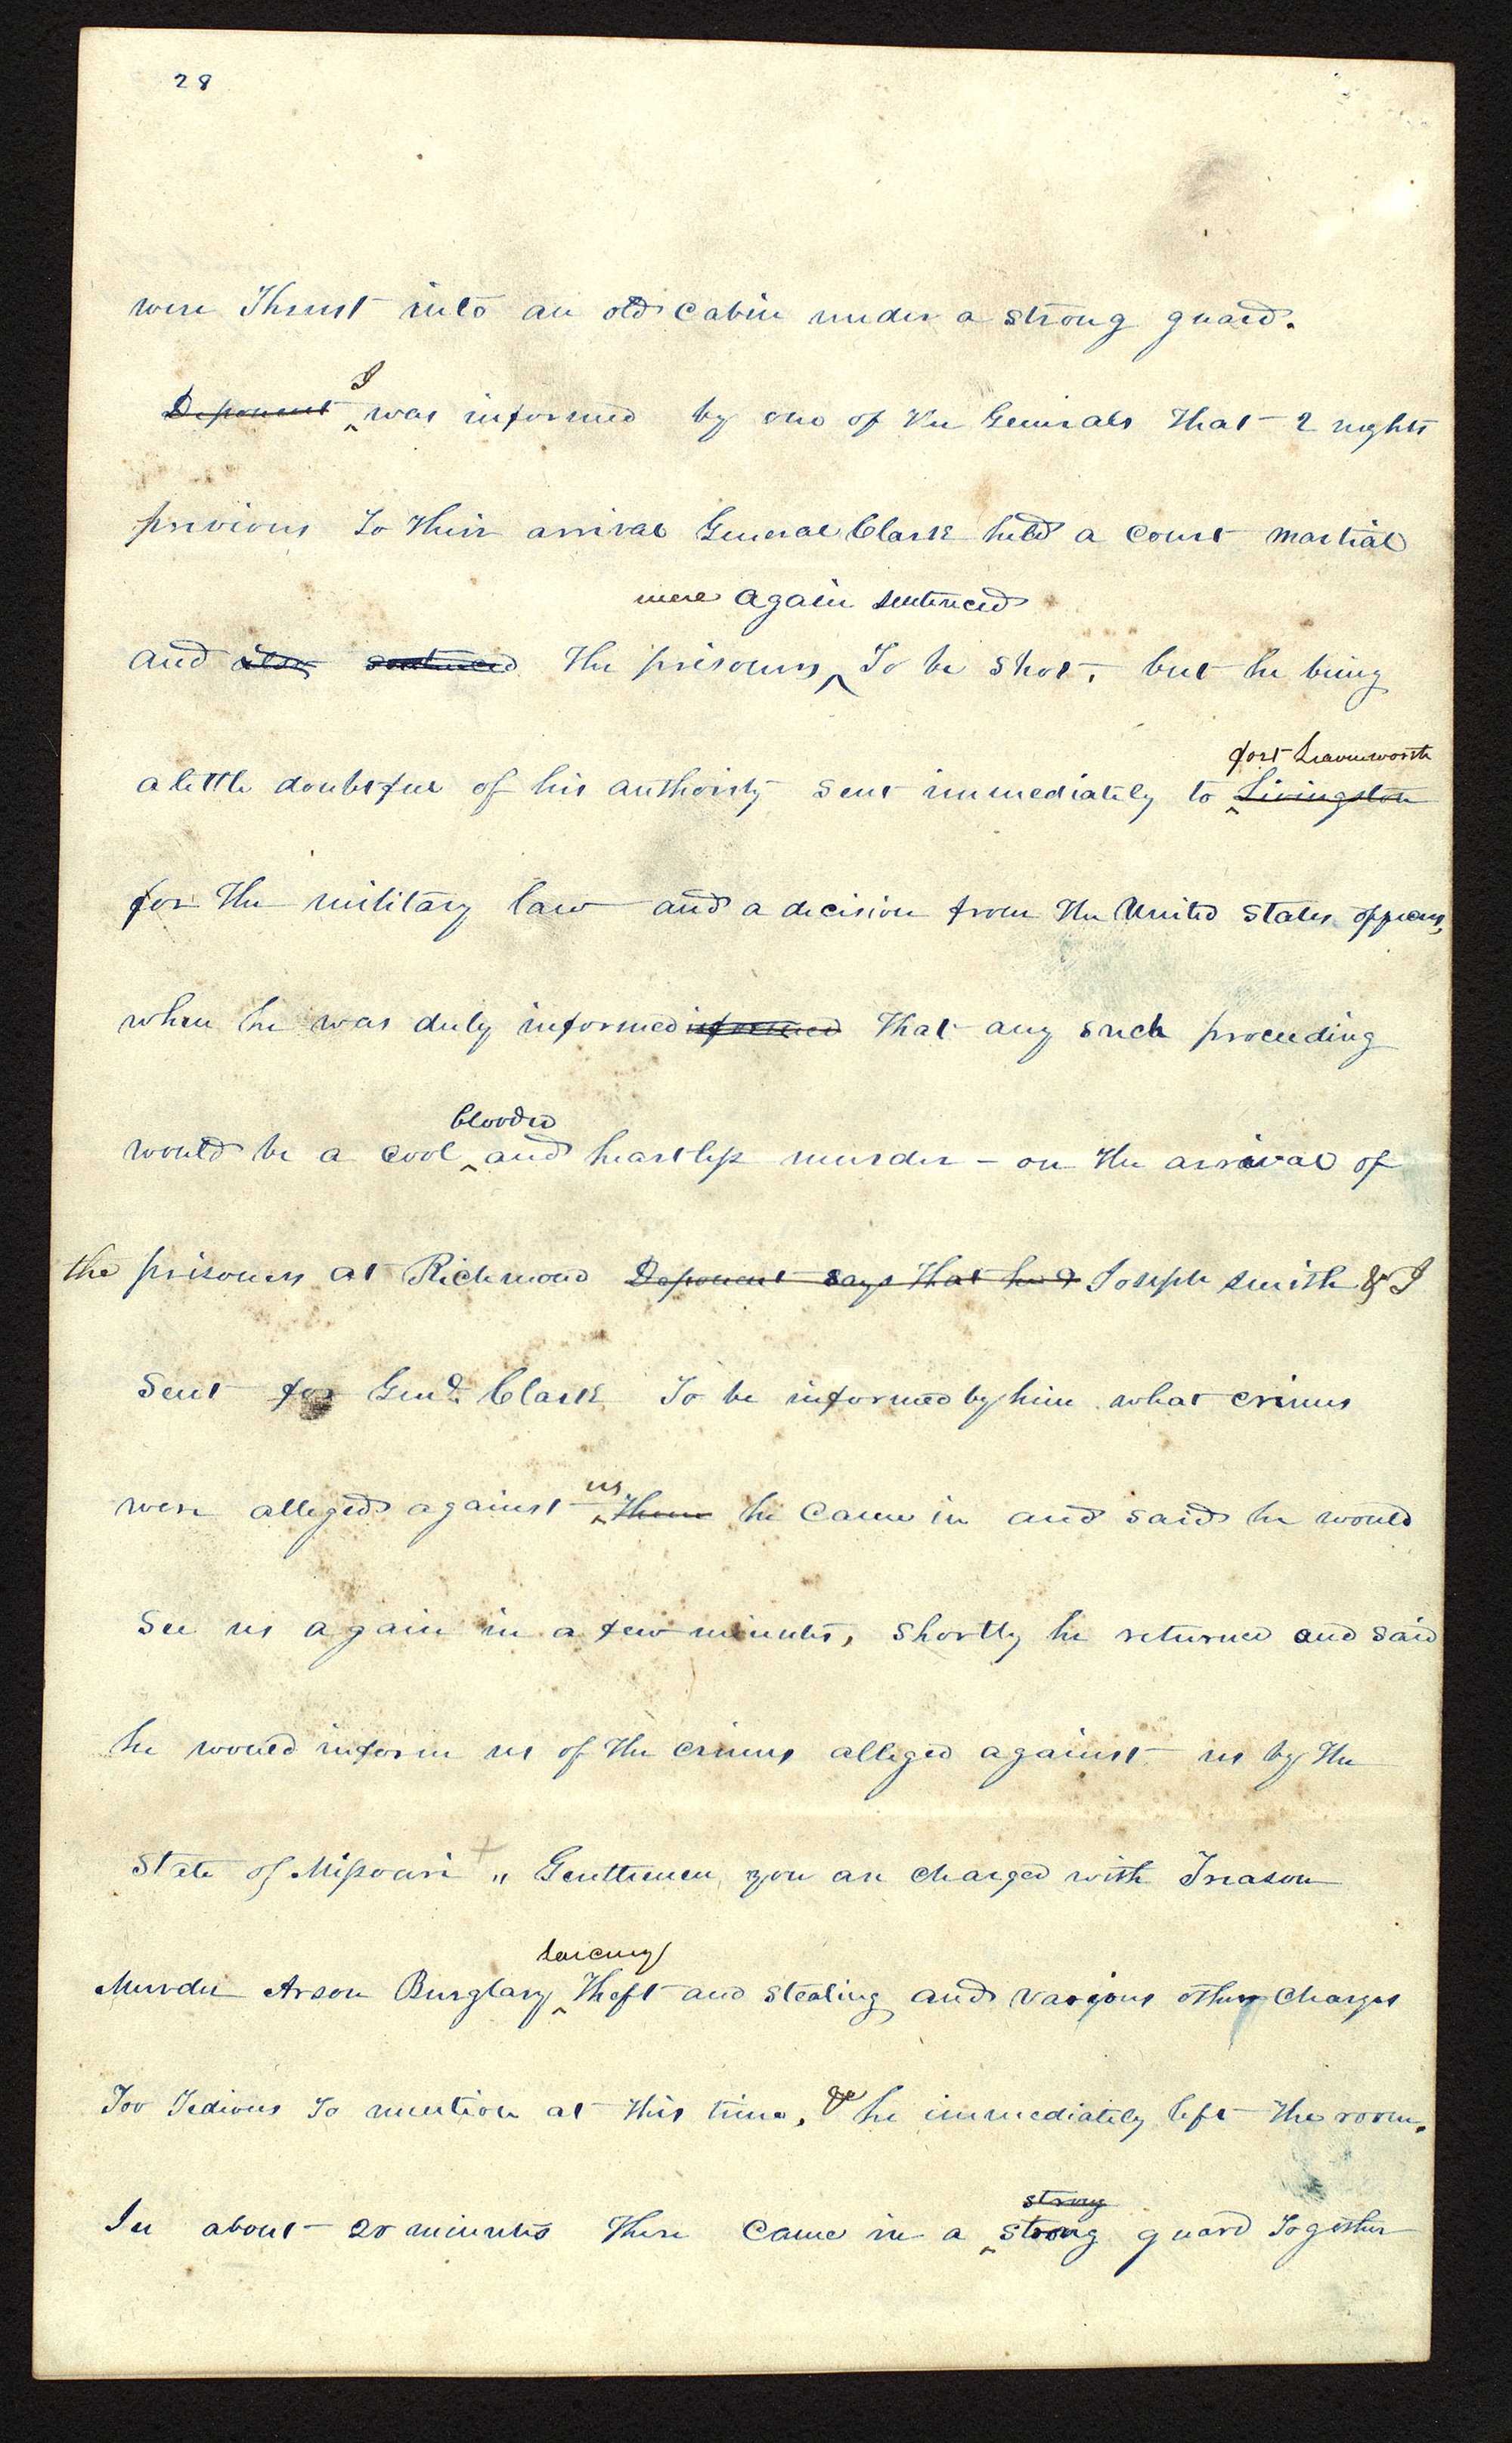 28
were Thrust into an old cabin under a strong guard.
I
Deponent was informed by one of the Generals that 2 nights
previous To their arrival General Clark held a court martial
were again sentenced
and also sentenced the prisoners To be shot, but he being
fort Leavenworth
a little doubtful of his authority sent immediately to Livingston
for the military law and a decision from the United States officers,
when he was duly informed informed that any such proceeding
blooded
would be a cool and heartless murder - on the arrival of
the prisoners at Richmond Deponent says that he & Joseph Smith & I
Sent for Genl. Clark To be informed by him what crimes
us
were alleged against them he came in and said he would
See us again in a few minutes, shortly he returned and said
he would inform us of the crimes alleged against us by the
State of Missouri " Gentlemen you are charged with Treason
larceny
Murder Arson Burglary Theft and stealing and various other charges
Too Tedious To mention at this time, & he immediately left the room.
strong
In about 20 minutes there came in a strong guard Together